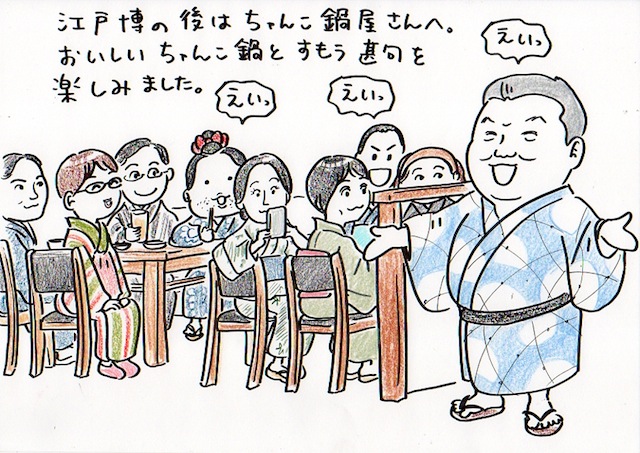 江戸博の後はちゃんこ鍋屋さんへ。
おいしいちゃんこ鍋とすもう甚句を
楽しみました。
えいっ
えいっ
えいっ